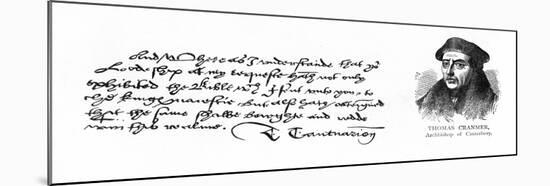 And Whereas I understande that yor
Lordeship at my requeste hath not only
exhibited the Bible wch I sent unto you, to
the kinges maiestie, but also hath obteigned
that the same shalbe bowghte and redde
within this realme. T Cantuarien
THOMAS CRANMER,
Archbishop of Canterbury.